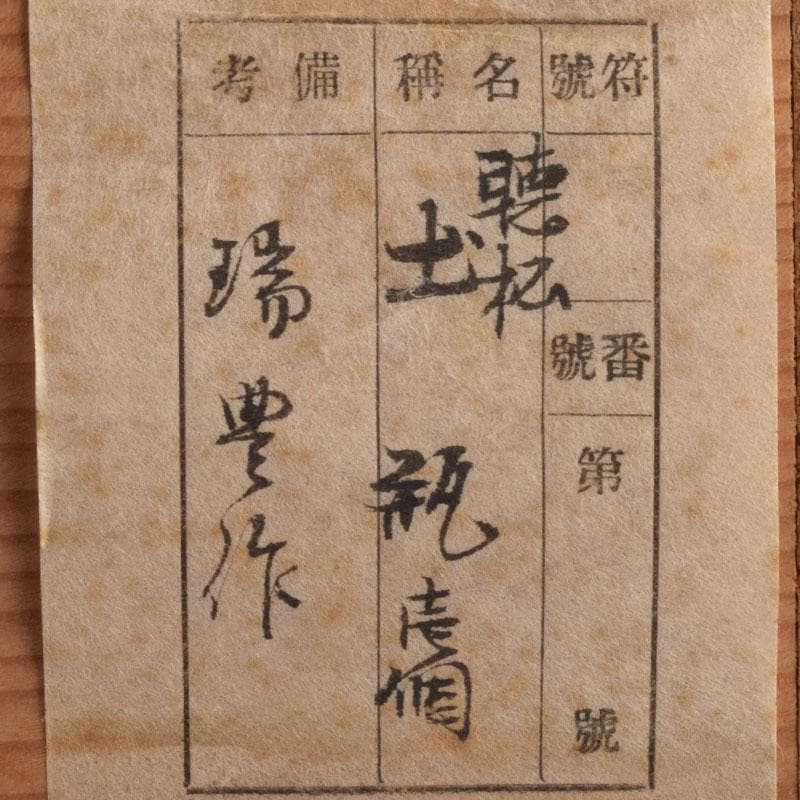 符號
番號
第 號
名稱
聴松
土瓶 壱個
備考
瑞豊作